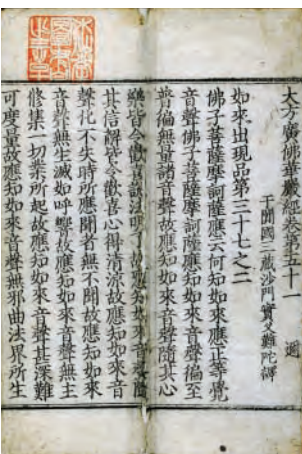 大方廣佛華嚴經卷第五十一
于闐國三藏沙門實叉難陀譯
如來出現品第三十七之二
佛子菩薩摩訶薩應云何知如來應正等覺
音聲佛子菩薩摩訶薩應知如來音聲徧至
普徧無量諸音聲故應知如來音聲隨其心
樂皆令歡喜說法明了故應知如來音聲隨
其信解皆令歡喜心得清涼故應知如來音
聲化不失時所應聞者無不聞故應知如來
音聲無生滅如呼響故應知如來音聲無主
修集一切業所起故應知如來音聲甚深難
可度量故應知如來音聲無邪曲法界所生